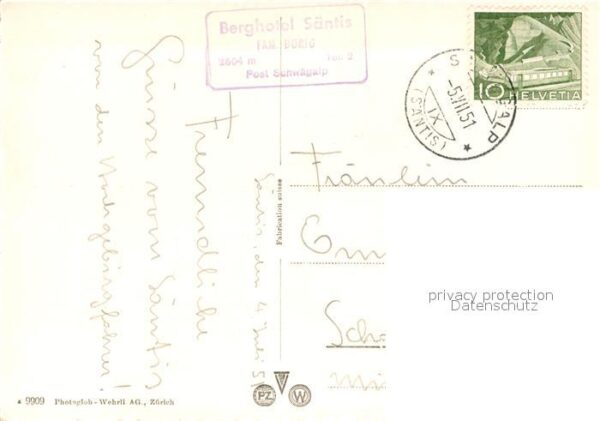 Berghotel Säntis
FAM. DÖRIG
2504 m Tel. 2
Post Schwägalp
10 HELVETIA
-5.VII.51
IX
(SÄNTIS)
Freundliche
Grüsse vom Säntis
von den Hochgebirgsfahrer!
Säntis, den 4. Juli 51
Fabrication suisse
Fräulein
privacy protection
Datenschutz
9909 Photoglob-Wehrli AG., Zürich
PZ W